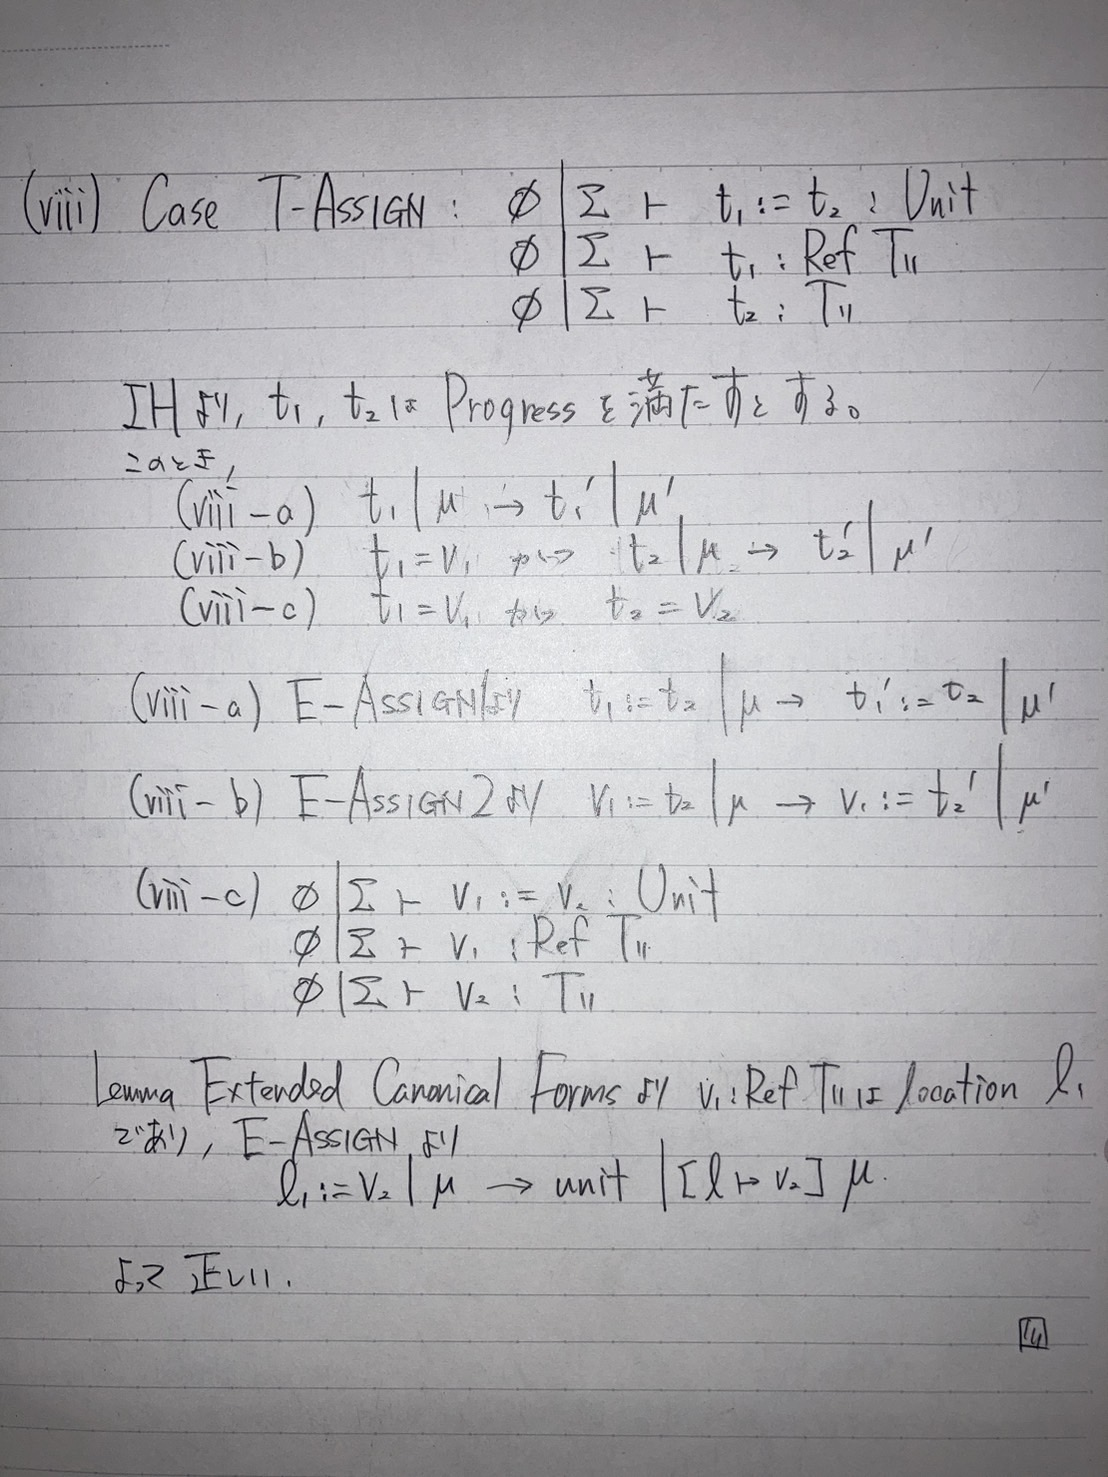 (viii) Case T-ASSIGN : ∅ | Σ ⊢ t₁ := t₂ : Unit
∅ | Σ ⊢ t₁ : Ref T₁₁
∅ | Σ ⊢ t₂ : T₁₁
IHより, t₁, t₂は Progress を満たすとする。
このとき,
(viii-a) t₁ | μ → t₁' | μ'
(viii-b) t₁ = v₁ かつ t₂ | μ → t₂' | μ'
(viii-c) t₁ = v₁ かつ t₂ = v₂
(viii-a) E-ASSIGN1より t₁ := t₂ | μ → t₁' := t₂ | μ'
(viii-b) E-ASSIGN2より v₁ := t₂ | μ → v₁ := t₂' | μ'
(viii-c) ∅ | Σ ⊢ v₁ := v₂ : Unit
∅ | Σ ⊢ v₁ : Ref T₁₁
∅ | Σ ⊢ v₂ : T₁₁
Lemma Extended Canonical Forms より v₁ : Ref T₁₁ は location l₁
であり, E-ASSIGN より
l₁ := v₂ | μ → unit | [l ↦ v₂] μ.
よって正しい.